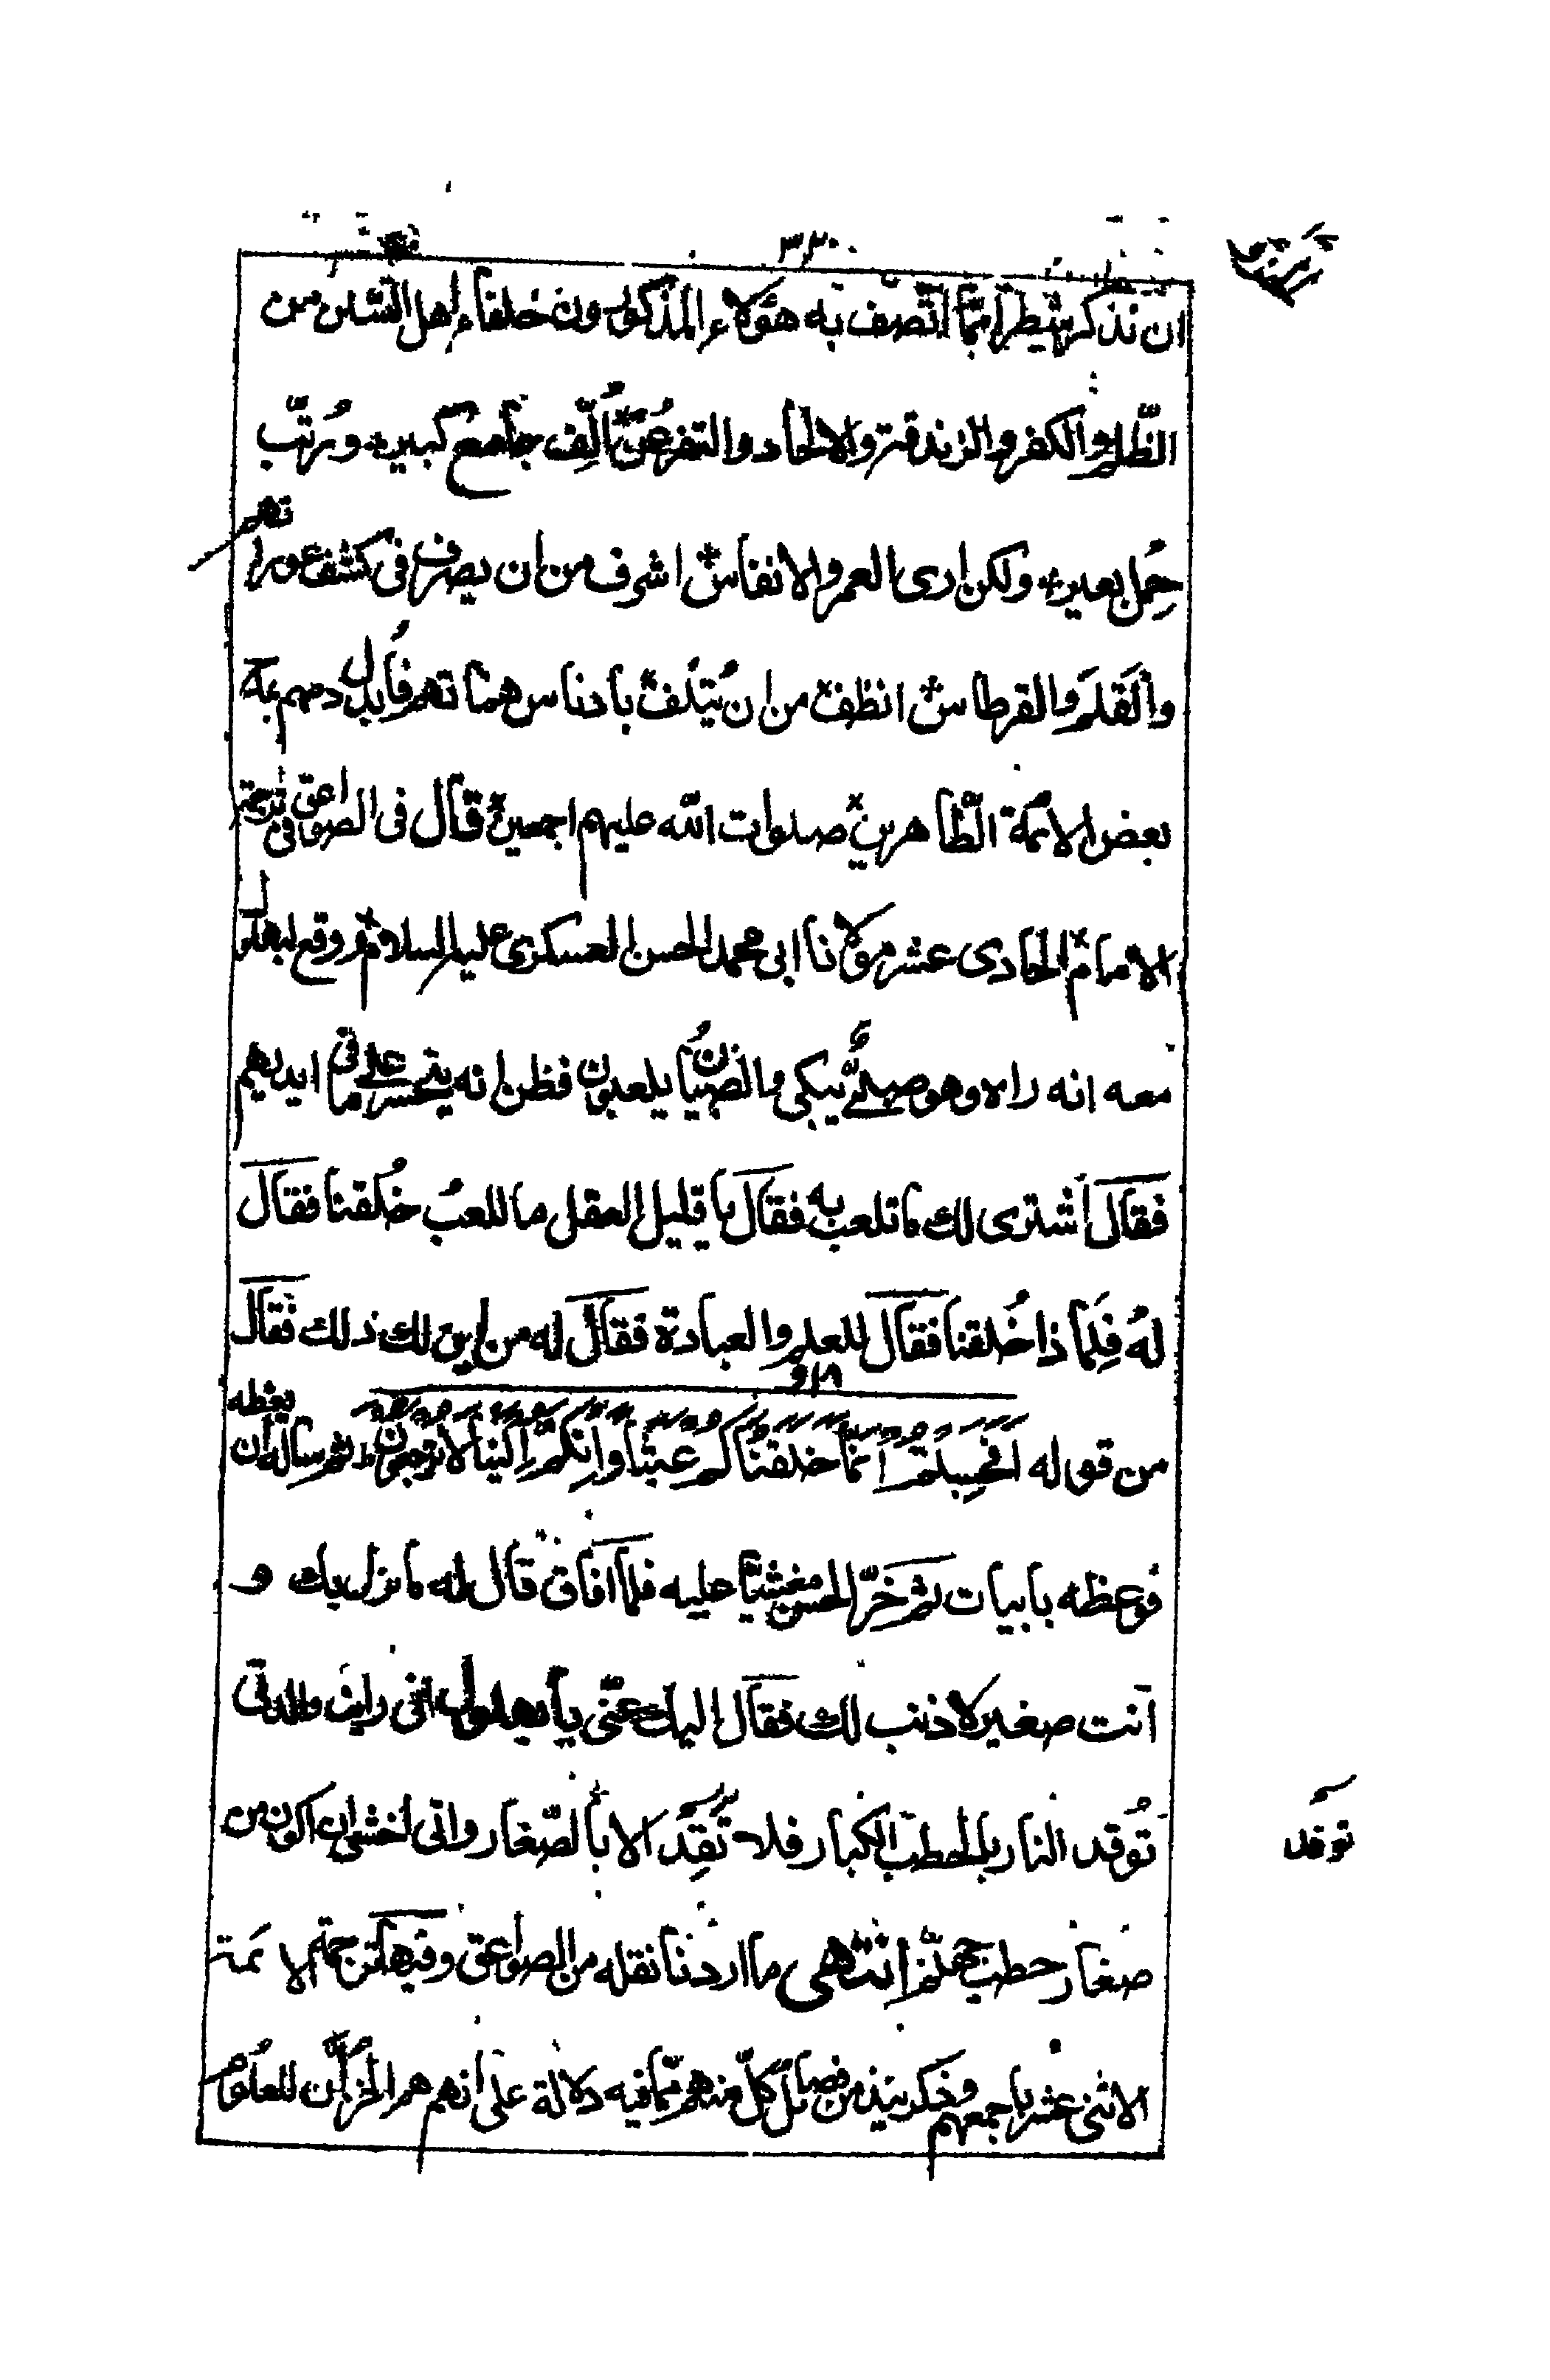 ٣٢٠
ان نذكر شطرا ممّا اتّصف به هؤلاء المذكورون خلفاء اهل التسنن من
الظّلم والكفر والزندقة والالحاد والتفرعن أُلّف جامع كبير، ورُتّب
حِمل بعير، ولكن ارى العمر والانفاس اشرف من ان يصرف فى كشف عوراتهم
والقلم والقرطاس انظف من ان يتلف بادناس همّاتهم فأبدل منهم بمدح
بعض الائمة الطّاهرين صلوات الله عليهم اجمعين قال فى الصواعق فى ترجمة
الامام الحادى عشر مولانا ابى محمد الحسن العسكرى عليه السلام وقع لبهلول
معه انه راه وهو صبىٌّ يبكى والصبيان يلعبون فظن انه يتحسر على ما فى ايديهم
فقال أشترى لك ما تلعب به فقال يا قليل العقل ما للعب خُلقنا فقال
له فلِما ذا خُلقنا فقال للعلم والعبادة فقال له من اين لك ذلك فقال
من قوله اَفَحَسِبتُم اَنَّمَا خَلَقنَاكُم عَبَثًا وَاَنَّكُم اِلَينَا لَا تُرجَعُونَ ثم ساله ان يعظه
فوعظه بابيات ثم خرّ الحسن مغشيّا عليه فلما افاق قال له ما نزل بك و
انت صغير لا ذنب لك فقال اليك عنّى يا بهلول انى رايت والدتى
تُوقد النار بالحطب الكبار فلا تَقِد الا بالصّغار وانى اخشى ان اكون من
توقد
صغار حطب جهنّم انتهى ما اردنا نقله من الصواعق وفيها ترجمة الائمة
الاثنى عشر باجمعهم وذكر نبذ من فضائل كلّ منهم ممّا فيه دلالة على انهم هم الخزّان للعلوم